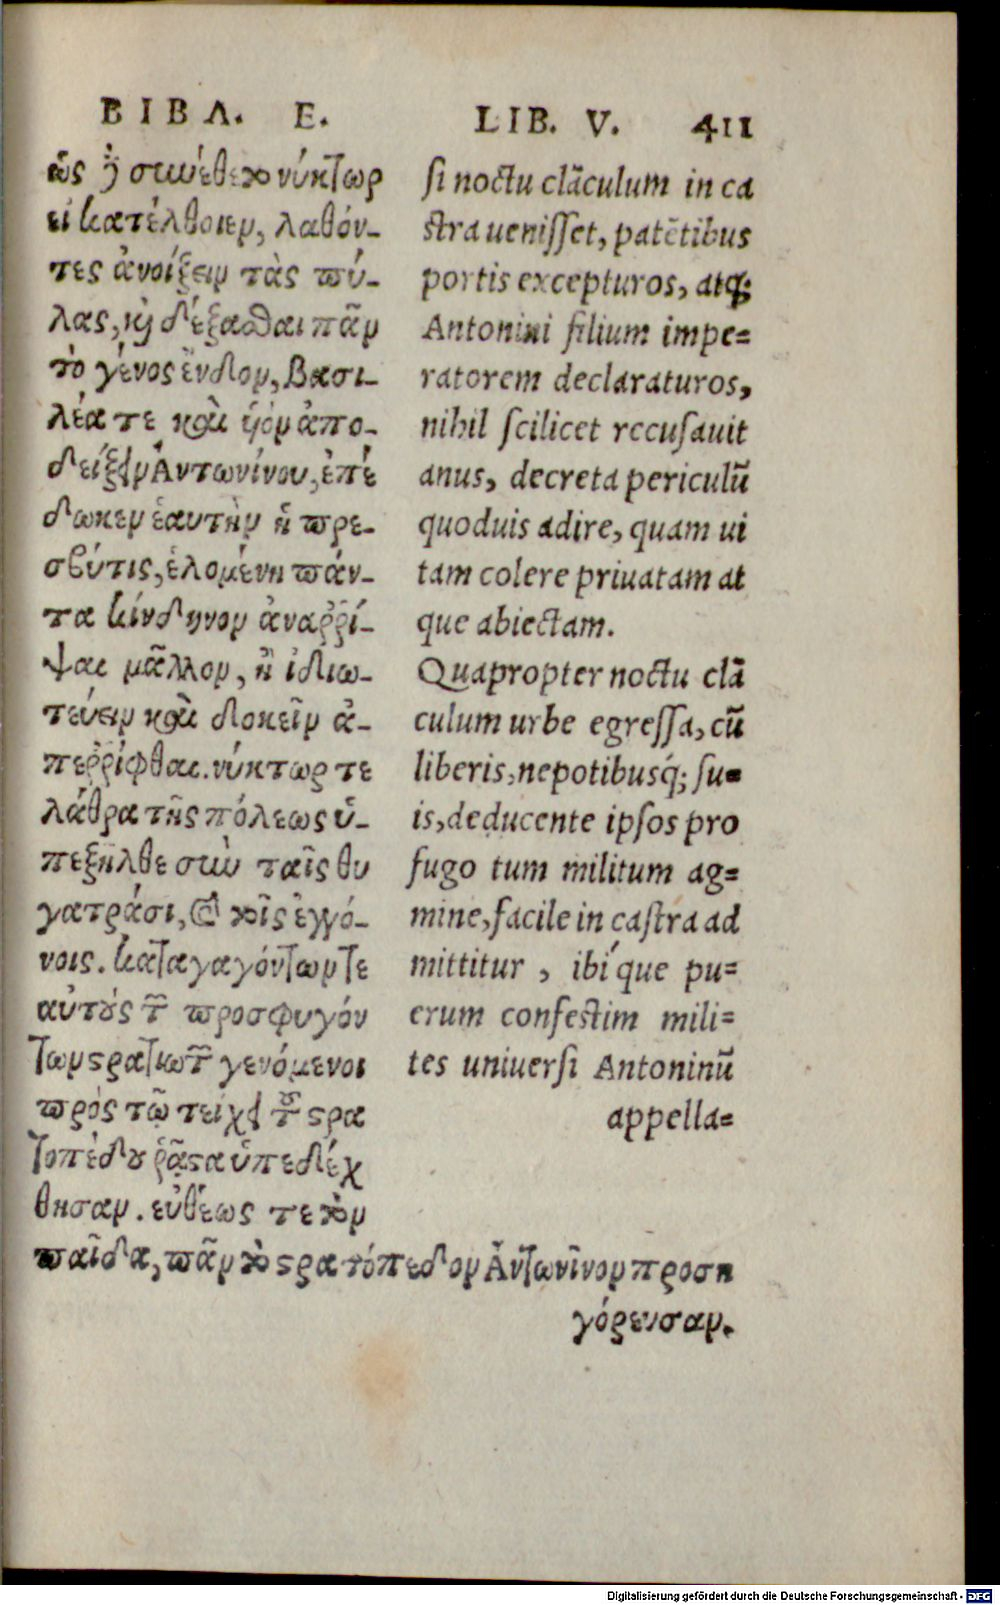 ΒΙΒΛ. Ε.
ὡς ἢ συνέθετο νύκτωρ
εἰ κατέλθοιεν, λαθόν-
τες ἀνοίξειν τὰς πύ-
λας, καὶ δέξασθαι πᾶν
τὸ γένος ἔνδον, βασι-
λέα τε καὶ υἱὸν ἀπο-
δείξειν Ἀντωνίνου, ἐπέ
δωκεν ἑαυτὴν ἡ πρε-
σβύτις, ἑλομένη πάν-
τα κίνδυνον ἀναῤῥί-
ψαι μᾶλλον, ἢ ἰδιω-
τεύειν καὶ δοκεῖν ἀ-
πεῤῥίφθαι. νύκτωρ τε
λάθρα τῆς πόλεως ὑ-
πεξῆλθε σὺν ταῖς θυ
γατράσι, καὶ τοῖς ἐγγό-
νοις. καταγαγόντων τε
αὐτοὺς τῶν προσφυγόν
των στρατιωτῶν γενόμενοι
πρὸς τῷ τείχει τοῦ στρα
τοπέδου ῥᾷστα ὑπεδέχ
θησαν. εὐθέως τε τὸν
παῖδα, πᾶν τὸ στρατόπεδον Ἀντωνῖνον προση
γόρευσαν.
LIB. V. 411
si noctu clāculum in ca
stra uenisset, patētibus
portis excepturos, atq;
Antonini filium impe=
ratorem declaraturos,
nihil scilicet recusauit
anus, decreta periculū
quoduis adire, quam ui
tam colere priuatam at
que abiectam.
Quapropter noctu clā
culum urbe egressa, cū
liberis, nepotibusq́; su=
is, deducente ipsos pro
fugo tum militum ag=
mine, facile in castra ad
mittitur, ibíque pu=
erum confestim mili=
tes uniuersi Antoninū
appella=
Digitalisierung gefördert durch die Deutsche Forschungsgemeinschaft - DFG